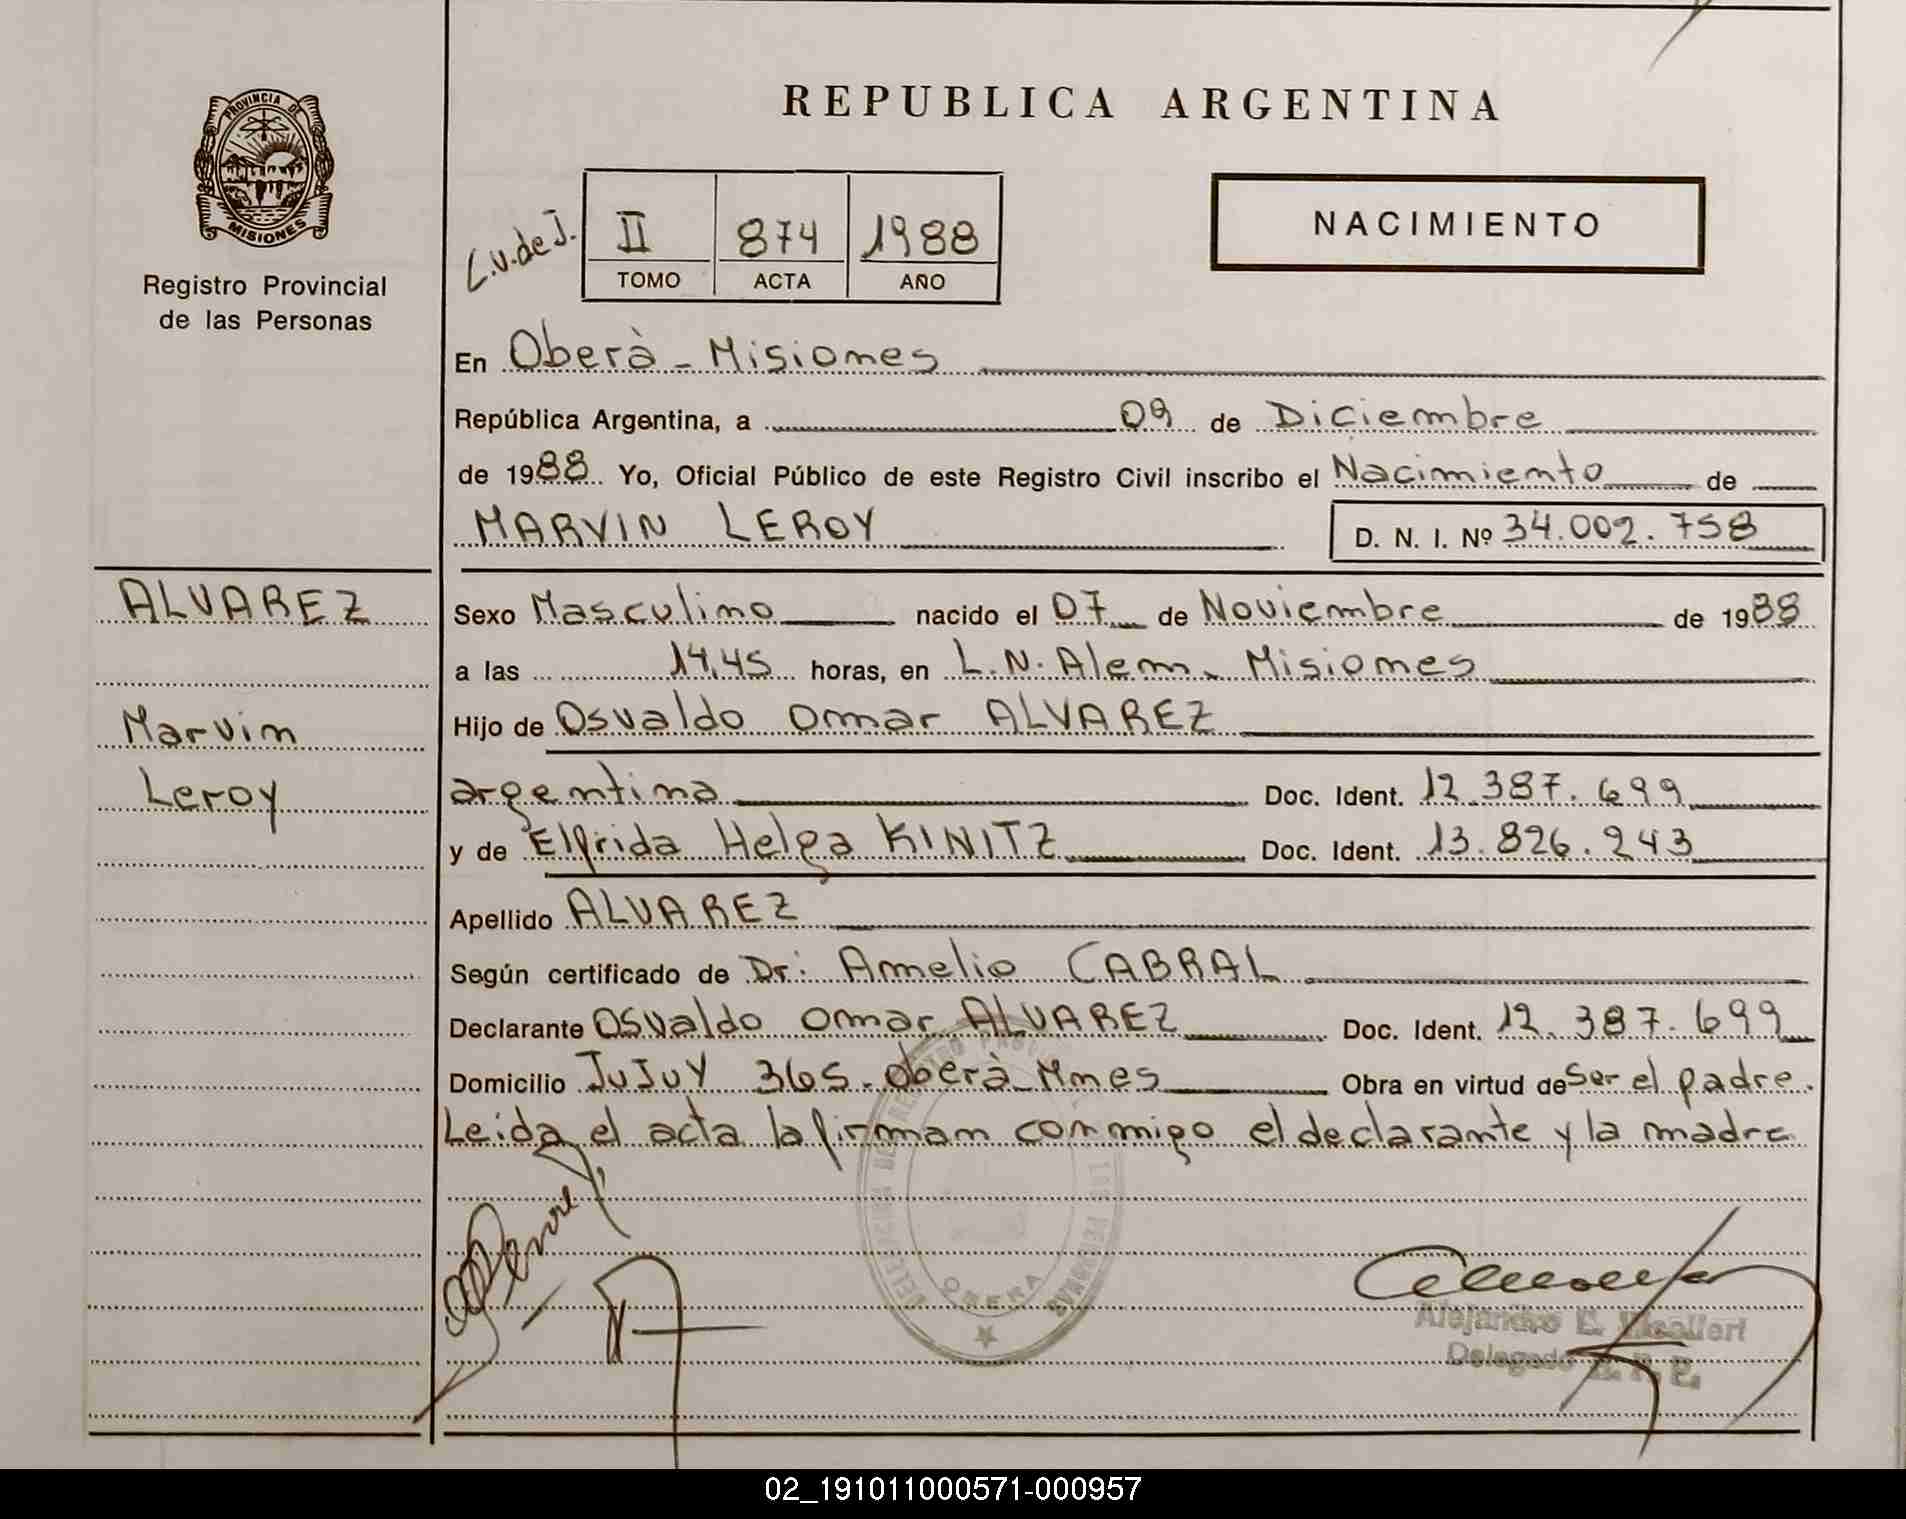 REPUBLICA ARGENTINA
PROVINCIA DE
MISIONES
Registro Provincial
de las Personas
L.V. de J.
II 874 1988
TOMO ACTA AÑO
NACIMIENTO
En Oberà - Misiones
República Argentina, a 09 de Diciembre
de 1988 Yo, Oficial Público de este Registro Civil inscribo el Nacimiento de
MARVIN LEROY D. N. I. Nº 34.002.758
ALVAREZ
Marvin
Leroy
Sexo Masculino nacido el 07 de Noviembre de 1988
a las 14,45 horas, en L.N. Alem - Misiones
Hijo de Osvaldo Omar ALVAREZ
argentina Doc. Ident. 12.387.699
y de Elfrida Helga KINITZ Doc. Ident. 13.826.243
Apellido ALVAREZ
Según certificado de Dr: Amelio CABRAL
Declarante Osvaldo Omar ALVAREZ Doc. Ident. 12.387.699
Domicilio JuJuY 365 - Oberà - Mnes Obra en virtud de Ser el padre.
Leida el acta la firman conmigo el declarante y la madre
DELEGACION DEL REGISTRO PROVINCIAL DE LAS PERSONAS
OBERA
Alejandro E.
Delegado R. P. P.
02_191011000571-000957